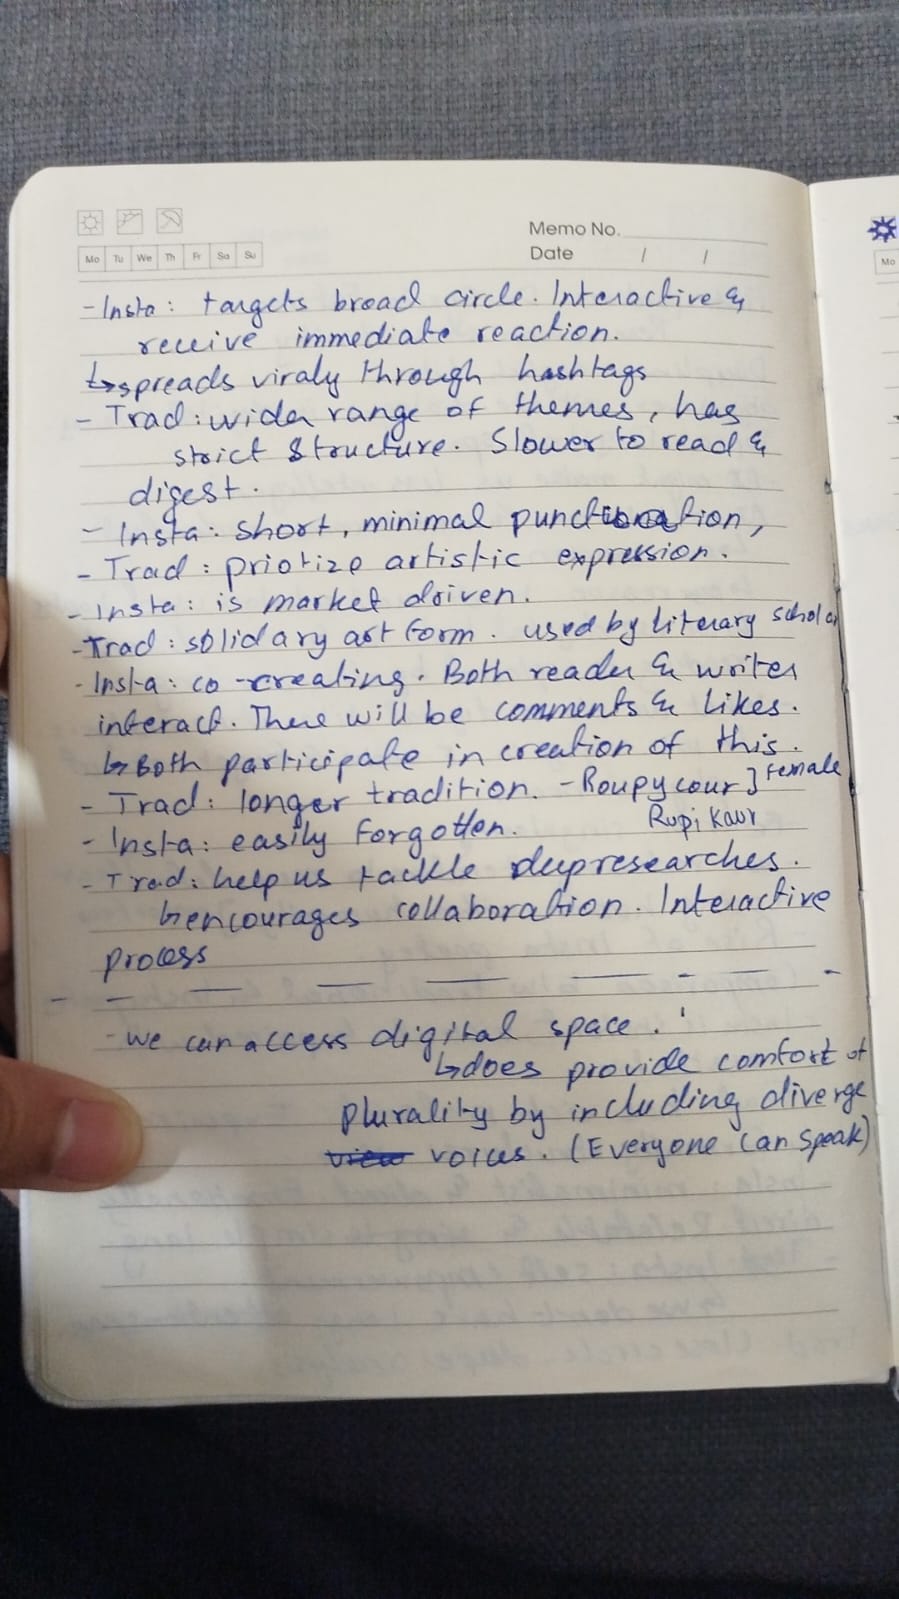 Memo No.
Mo Tu We Th Fr Sa Su
Date / /
Mo
- Insta : targets broad circle. Interactive &
receive immediate reaction.
↳ spreads viraly through hashtags
- Trad : wider range of themes, has
strict structure. Slower to read &
digest.
- Insta : short, minimal punctuation,
- Trad : priotize artistic expression.
- Insta : is market driven.
- Trad : solidary art form. used by literary schola
- Insta : co-creating. Both reader & writer
interact. There will be comments & likes.
↳ Both participate in creation of this.
- Trad : longer tradition. - Roupy cour ] female
Rupi Kaur
- Insta : easily forgotten.
- Trad : help us tackle deep researches.
↳ encourages collaboration. Interactive
process
- we can access digital space.
↳ does provide comfort of
plurality by including diverge
voices. (Everyone can speak)